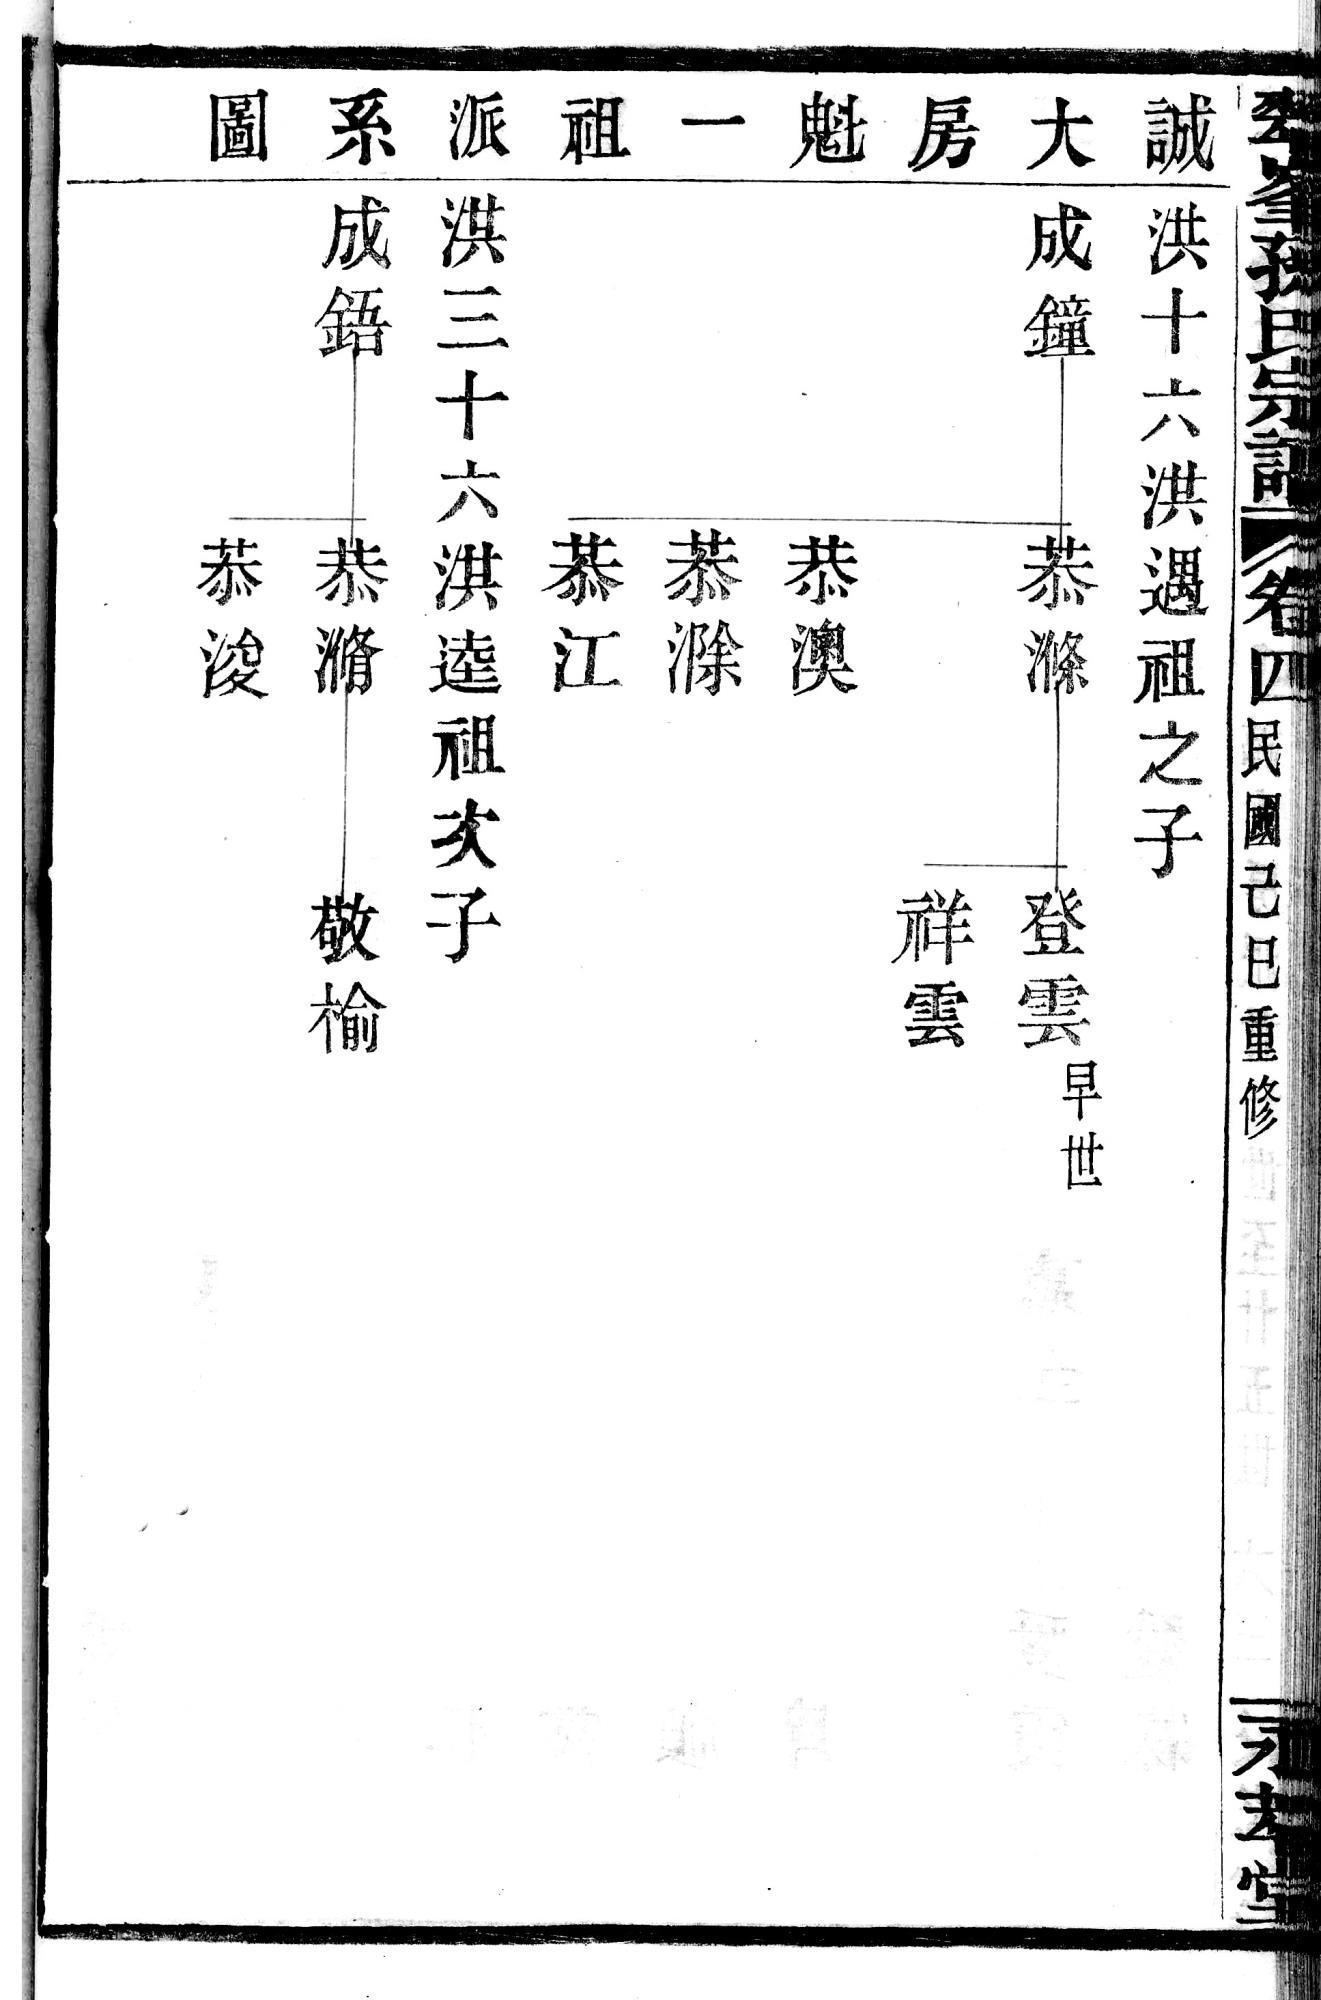 峯孫氏宗譜
卷四
民國己巳重修
永孝堂
誠大房魁一祖派系圖
洪十六洪遇祖之子
成鐘
恭滌
登雲
早世
祥雲
恭澳
恭滁
恭江
洪三十六洪逵祖次子
成鋙
恭潃
敬榆
恭浚